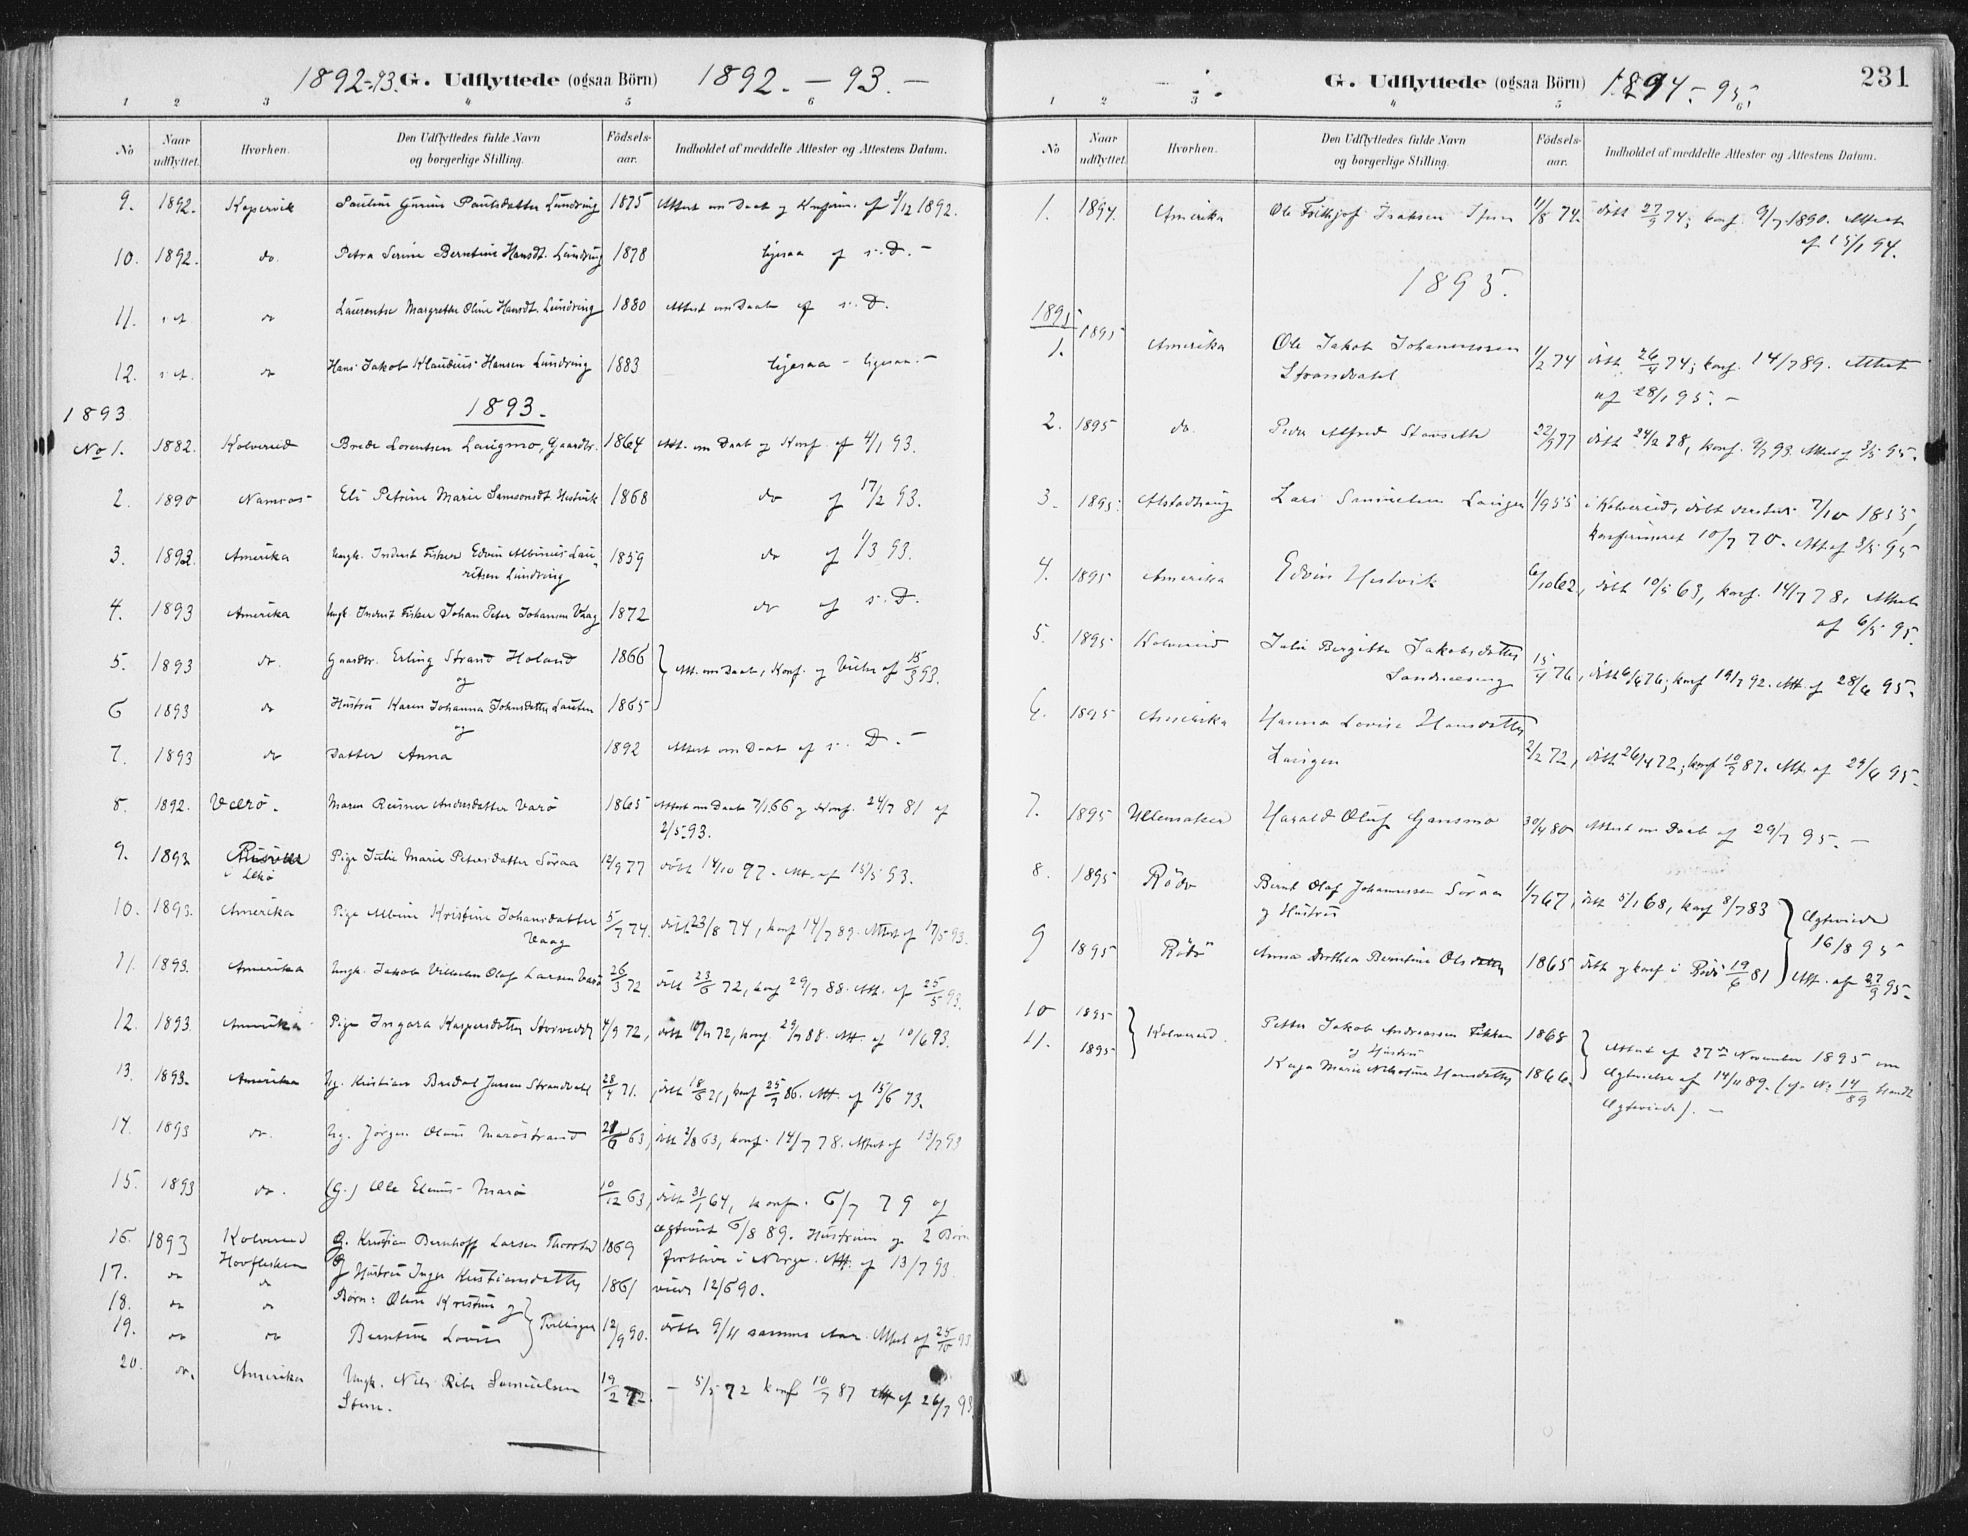 1892-93. G. Udflyttede (ogsaa Börn) 1892. – 93. –
1 2 3 4 5 6
No
Naar udflyttet.
Hvorhen.
Den Udflyttedes fulde Navn og borgerlige Stilling.
Födsels-aar.
Indholdet af meddelte Attester og Attestens Datum.
9. 1892. Kopervik Pauline Gurine Paulsdatter Lundring 1875 Attest om Daab og Konfirm. af 3/12 1892.
10. 1892. do. Petra Serine Berntine Hansdt. Lundring 1878 ligesaa af s. D. –
11. s. A. do Laurentse Margrethe Oline Hansdt. Lundring 1880 Attest om Daab af s. D.
12. s. A. do Hans Jakob Klaudius Hansen Lundring 1883 ligesaa – ligesaa. –
1893 1893.
No 1. 1882. Kolvereid Brede Lorentsen Laugmo, Gaardbr. 1864 Att. om Daab og Konf. af 4/1 93.
2. 1890 Namsos Eli Petrine Marie Samsonsdt Hestvik 1868 do af 17/2 93.
3. 1892. Amerika Ungk. Inderst Fisker Edvin Albinus Lau-
ritsen Lundring 1859 do af 1/3 93.
4. 1893 Amerika Ungk Inderst Fisker Johan Peter Johansen Vaag 1872 do af s. D.
5. 1893 do. Gaardbr. Erling Strand Holand 1866 Att. om Daab, Konf. og Vielse af 15/3 93.
og
6 1893 do Hustru Karen Johanna Johnsdatter 1865
og
7. 1893 do Datter Anna 1892 Attest om Daab af s. D. –
8. 1892. Værö. Maren Andersdatter Varö 1865 Attest om Daab 7/1 66 og Konf. 24/7 81 af
2/5 93.
9. 1893 Pige Julie Marie Petersdatter Söraa 12/9 77 döbt 14/10 77. Att. af 15/5 93.
i Lekö
10. 1893. Amerika Pige Albine Kristine Johansdatter 5/7 74. döbt 23/8 74, konf 14/7 89. Attest af 17/5 93.
Vaag
11. 1893. Amerika Ungk. Jakob Vilhelm Olaf Larsen Varö 26/3 72 döbt 23/6 72, konf 29/7 88. Att. af 25/5 93.
12. 1893. Amerika Pige Ingara Kaspersdatter 4/9 72, döbt 72, konf. 29/7 88. Att. af 10/6 93.
13. 1893. Amerika Ug. Kristian Bredal Jensen Strandvald 28/4 71. döbt 18/6 71, konf 25/7 86. Att. af 15/6 93.
14. 1893 do. Ug. Jörgen Olaus Maröstrand 21/6 63, döbt 2/8 63, konf. 14/7 78. Attest af 13/7 93
15. 1893 do. (G.) Ole Elenus Marö 10/12 63, döbt 31/1 64, konf. 6/7 79 og
ægteviet 6/8 89. Hustruen og 2 Börn
forblive i Norge. Att. af 13/7 93.
16. 1893 Kolvereid G. Kristian Bernhoff Larsen 1869
17. do do Hustru Inger Kristiansdatter 1861 viede 12/6 90.
18. do do Börn: Oline Kristine og
19. do do Berntine Lovise Tvillinger 12/9 90. döbte 9/11 samme Aar. Attest af 25/10 93
20. do. Amerika Ungk. Nils Ribe Samuelsen 19/2 72. – 5/5 72 konf 10/7 87 Att af 26/7 93.
Steen.
G. Udflyttede (ogsaa Börn) 1894 – 95. 231
1 2 3 4 5 6
No
Naar udflyttet.
Hvorhen.
Den Udflyttedes fulde Navn og borgerlige Stilling.
Födsels-aar.
Indholdet af meddelte Attester og Attestens Datum.
1. 1894. Amerika Ole Frithjof Isaksen 11/8 74. döbt 27/9 74; konf. 9/7 1890. Attest
af 15/1 94.
1895.
1895
1. 1895 Amerika Ole Jakob Johannessen 1/2 74 döbt 26/4 74; konf. 14/7 89. Attest
Strandvald af 28/1 95. –
2. 1895 do. Peder Alfred 22/9 77 döbt 24/2 78, konf. 9/7 93. Attest af 3/5 95.
3. 1895. Alstadhaug Lars Samuelsen 1/9 55 i Kolvereid, döbt dersteds 7/10 1855,
konfirmeret 10/7 70. Att af 3/5 95
4. 1895 Amerika Edvin Hestvik 6/10 62, döbt 10/5 63, konf. 14/7 78, Attest
af 6/5 95.
5. 1895 Kolvereid Julie Bergitte Jakobsdatter 15/4 76, döbt 76; konf 19/7 92. Att. af 28/6 95.
6. 1895 Amerika Hanna Lovise Hansdatter
2/2 72, döbt 26/4 72, konf 10/7 87. Att. af 29/6 95.
7. 1895 Ullensaker Harald Oluf Gansmo 30/4 80 Attest om Daab af 29/7 95. –
8. 1895 Rödö Bernt Olaf Johannessen Söraa 1/7 67, döbt 5/1 68, konf 8/7 83 Ægteviede
og Hustru 16/8 95
9 1895 Rödö Anna Dorthea Berntine Olsdatter 1865 döbt og konf i Rödö 19/6 81 Att. af 27/9 95.
10 1895 Kolvereid. Petter Jakob Andreassen 1868 Attest af 27de November 1895 om
og Hustru
11. 1895 Kaja Marie Nikoline Hansdatter 1866. Ægtevielse af 14/11 89. (jfr. No 14/89
Ægteviede). –